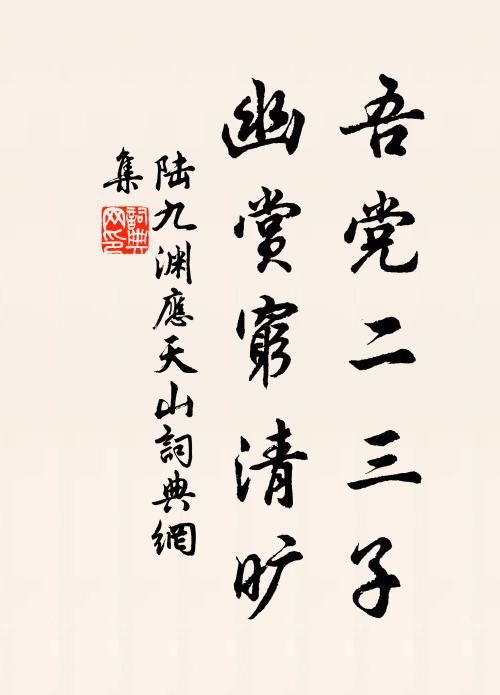 吾党二三子
幽赏穷清旷
陆九渊應天山詞典網
集
詞典网印